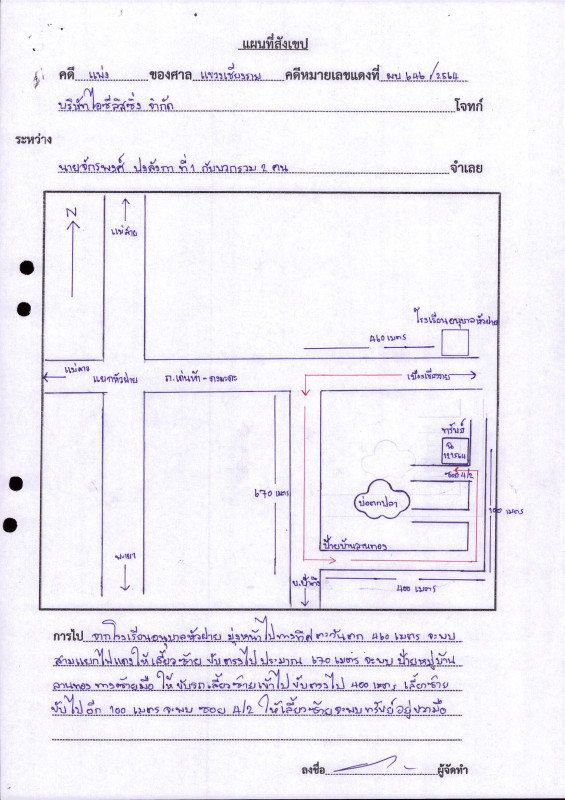 แผนที่สังเขป
คดี แพ่ง ของศาล แขวงเชียงราย คดีหมายเลขแดงที่ ผบ 646/2564
บริษัทไอซีลิสซิ่ง จำกัด โจทก์
ระหว่าง
นายจักรพงศ์ ที่ 1 กับพวกรวม 2 คน จำเลย
N
แม่สาย
โรงเรียนอนุบาลหัวฝาย
460 เมตร
แม่ลาว
แยกหัวฝาย
ถ.เด่นห้า - ดงมะดะ
เมืองเชียงราย
ทรัพย์
121564
ซอย 4/2
670 เมตร
บ่อตกปลา
100 เมตร
ป้ายบ้านลานทอง
พะเยา
400 เมตร
การไป จากโรงเรียนอนุบาลหัวฝาย มุ่งหน้าไปทางทิศตะวันตก 460 เมตร จะพบ
สามแยกไฟแดงให้เลี้ยวซ้าย ขับตรงไป ประมาณ 670 เมตร จะพบ ป้ายหมู่บ้าน
ลานทอง ทางซ้ายมือ ให้ ขับรถเลี้ยวซ้ายเข้าไป ขับตรงไป 400 เมตร เลี้ยวซ้าย
ขับไปอีก 100 เมตร จะพบ ซอย 4/2 ให้เลี้ยวซ้ายจะพบทรัพย์อยู่ขวามือ
ลงชื่อ ผู้จัดทำ